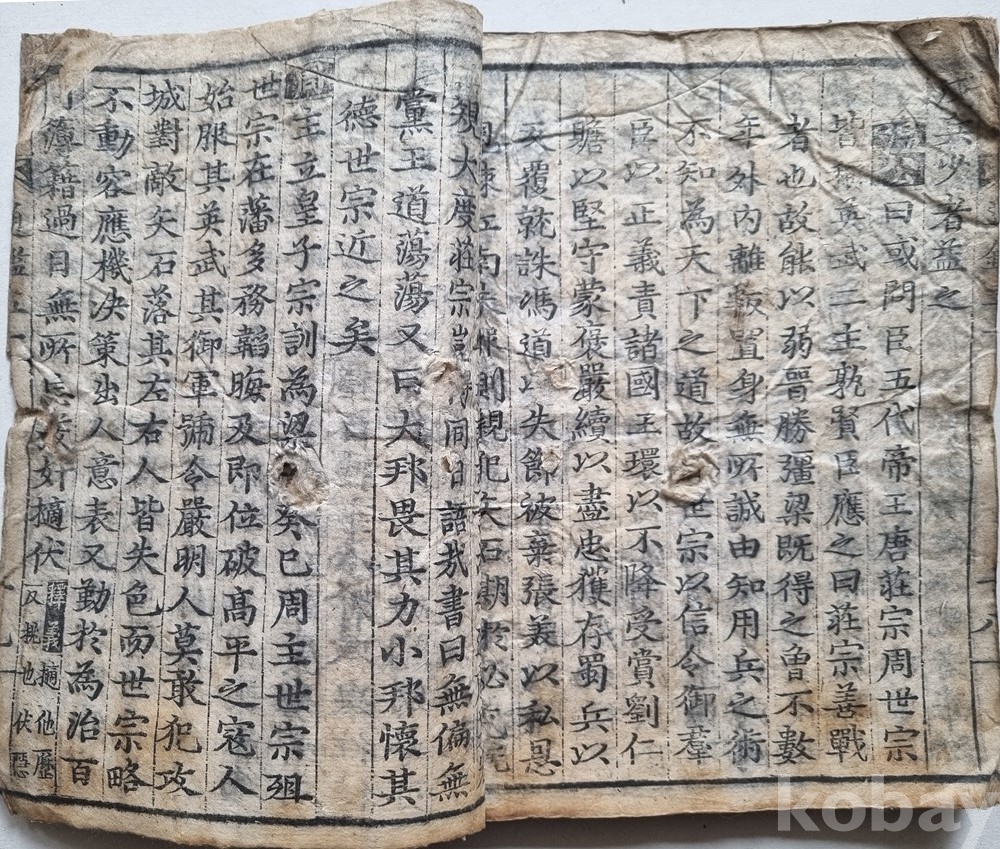 少者益之
溫公曰或問臣五代帝王唐莊宗周世宗
皆稱英武二主孰賢臣應之曰莊宗善戰
者也故能以弱晉勝彊梁既得之曾不數
年外內離叛置身無所誠由知用兵之術
不知為天下之道故世宗以信令御羣
臣以正義責諸國王環以不降受賞劉仁
贍以堅守蒙褒嚴續以盡忠獲存蜀兵以
反覆就誅馮道以失節被棄張美以私恩
江南未服則親犯矢石期於必克既
規大度莊宗豈得同日語哉書曰無偏無
黨王道蕩蕩又曰大邦畏其力小邦懷其
德世宗近之矣
周主立皇子宗訓為梁癸巳周主世宗殂
世宗在藩多務韜晦及即位破高平之寇人
始服其英武其御軍號令嚴明人莫敢犯攻
城對敵矢石落其左右人皆失色而世宗略
不動容應機決策出人意表又勤於為治百
司簿籍過目無所忘發奸擿伏
釋義擿他歷
反挑也伏
kobay